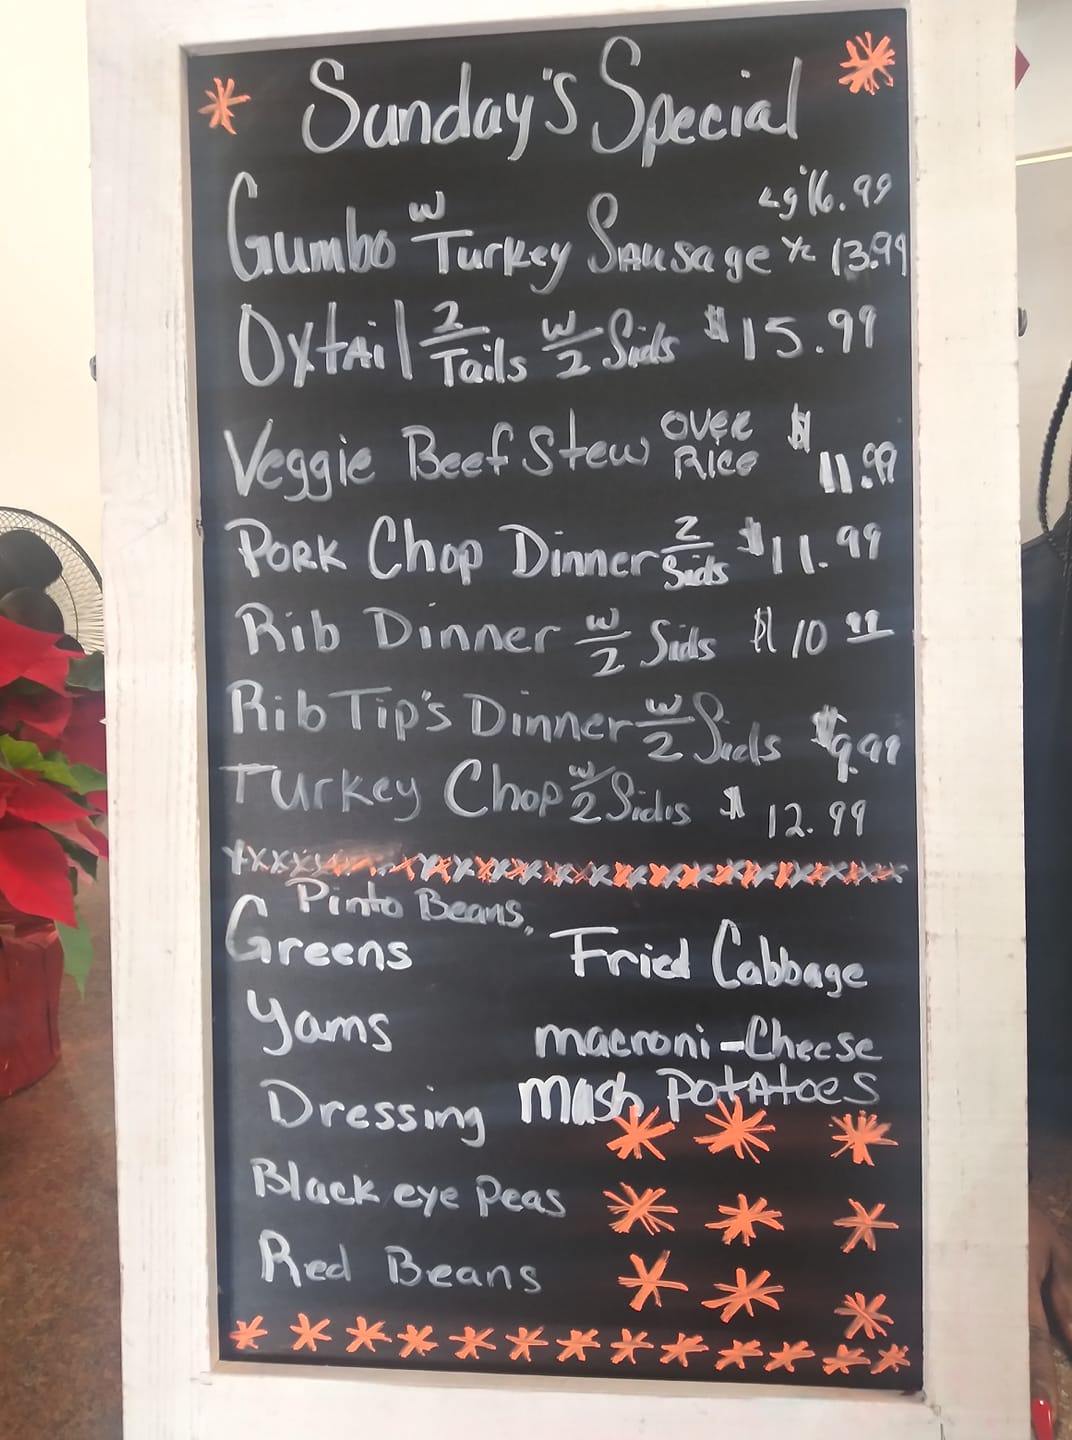 Sunday's Special
Lg $16.99
Gumbo w Turkey Sausage 13.99
Oxtail 2 Tails w 2 Sids $15.99
Veggie Beef Stew over Rice $11.99
Pork Chop Dinner 2 Sids $11.99
Rib Dinner w 2 Sids $10 99
Rib Tip's Dinner w 2 Sids $9.99
Turkey Chop w 2 Sids $12.99
Pinto Beans,
Greens Fried Cabbage
Yams macroni-Cheese
Dressing Mash Potatoes
Black eye Peas
Red Beans